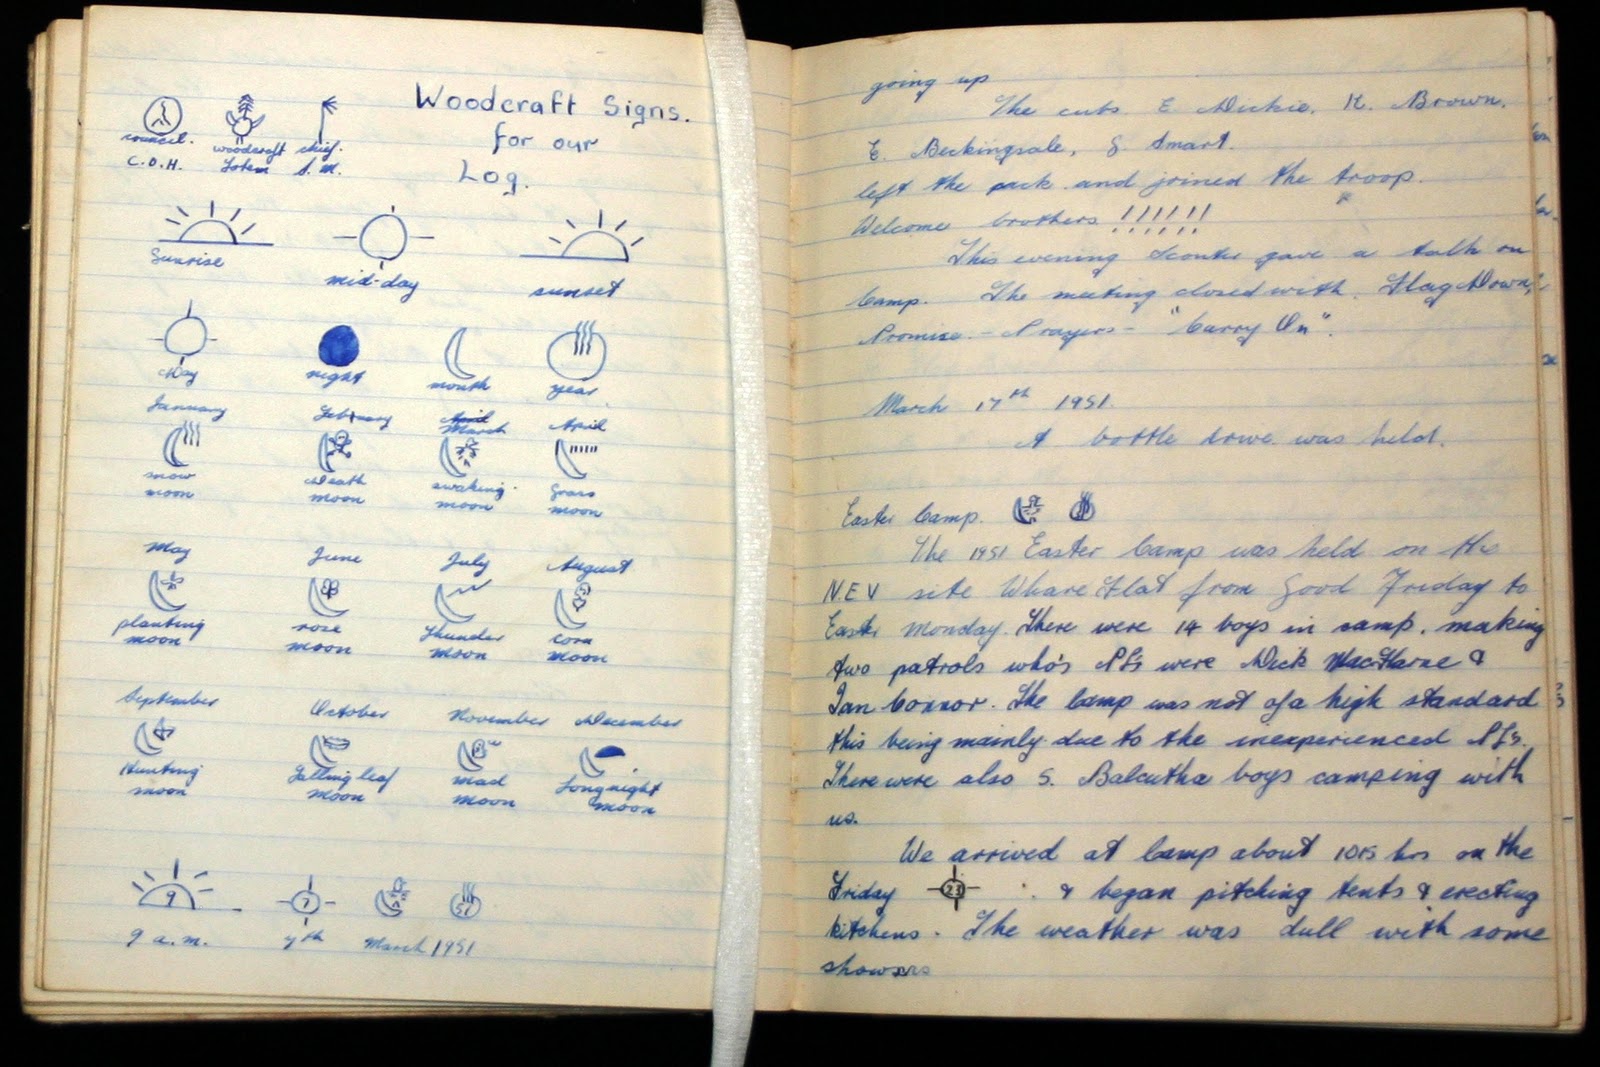 Woodcraft Signs.
for our
Log.
council. woodcraft chief.
C.O.H. Totem S.M.
Sunrise mid-day sunset
Day night month year
January February March April
snow moon Death moon awaking moon Grass moon
May June July August
planting moon rose moon Thunder moon corn moon
September October November December
Hunting moon Falling leaf moon mad moon Long night moon
9 7 51
9 a.m. 7th March 1951
going up
The cubs E Dickie, K. Brown.
E. Beckingsale, G Smart.
left the pack and joined the troop.
Welcome brothers !!!!!!
This evening Scouter gave a talk on
Camp. The meeting closed with. Flag Down,
Promise - Prayers - "Carry On".
March 17th 1951.
A bottle drive was held.
Easter Camp.
The 1951 Easter Camp was held on the
N.E.V site Whare Flat from Good Friday to
Easter Monday. There were 14 boys in camp, making
two patrols who's P.L's were Dick &
Ian Connor. The Camp was not of a high standard
this being mainly due to the inexperienced P.L's.
There were also S. Balcutha boys camping with
us.
We arrived at Camp about 1015 hrs on the
Friday 23 & began pitching tents & erecting
kitchens. The weather was dull with some
showers